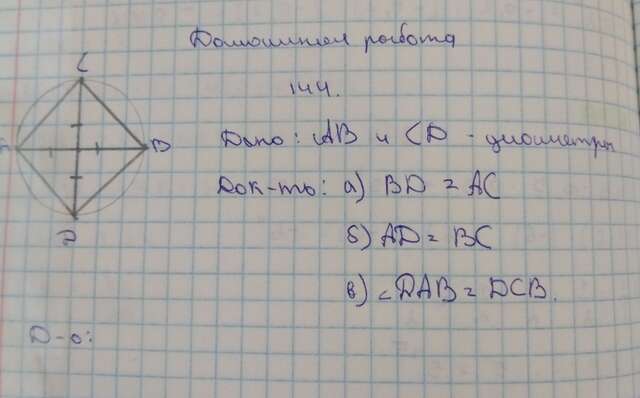 Домашняя работа
144.
C
D
Дано: AB и CD - диаметры
Док-ть: а) BD = AC
б) AD = BC
в) ∠DAB = DCB.
Д-о: